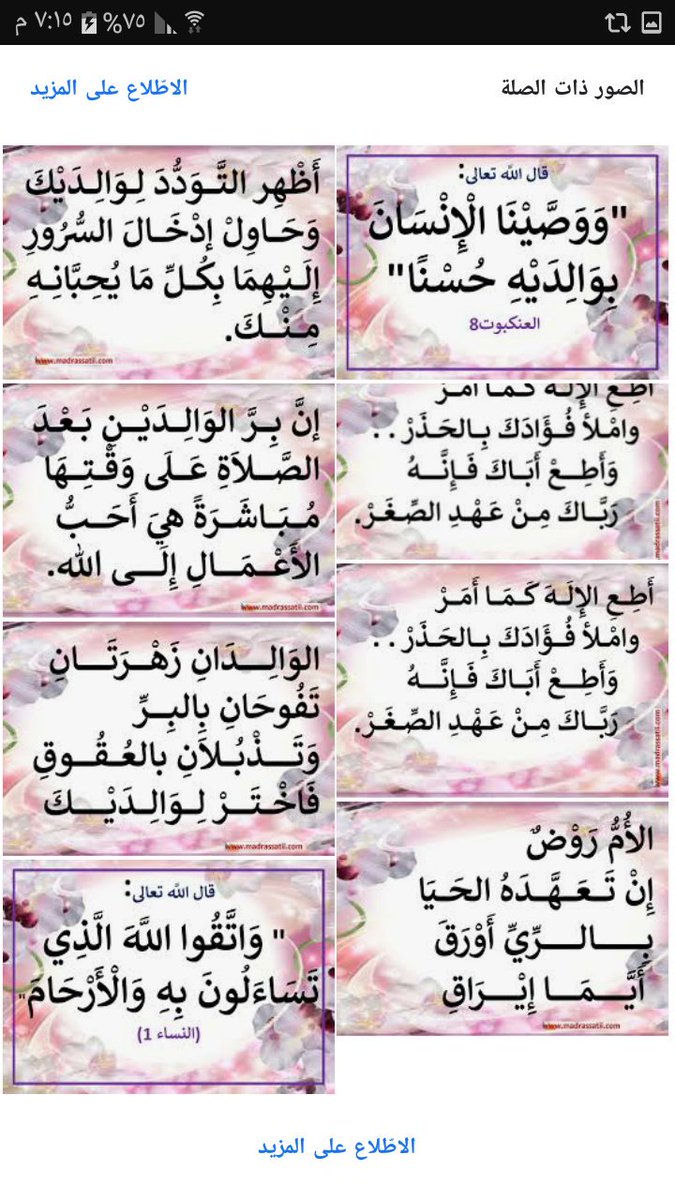 ٧:١٥ م ٧٥%
الصور ذات الصلة
الاطّلاع على المزيد
قال الله تعالى:
"وَوَصَّيْنَا الْإِنْسَانَ
بِوَالِدَيْهِ حُسْنًا"
العنكبوت8
أَظْهِر التَّـوَدُّدَ لِـوَالِـدَيْـكَ
وَحَـاوِلْ إدْخَـالَ السُّـرُورِ
إِلَـيْـهِمَا بِـكُـلِّ مَـا يُـحِبَّـانِـهِ
مِـنْـكَ.
www.madrassatii.com
أَطِـعِ الإِلَـهَ كَـمَـا أَمَـرْ
وامْـلأ فُـؤَادَكَ بِـالحَـذَرْ..
وَأَطِـعْ أَبَـاكَ فَـإِنَّـهُ
رَبَّـاكَ مِـنْ عَـهْدِ الصِّـغَـرْ.
www.madrassatii.com
إنَّ بِـرَّ الوَالِـدَيْـنِ بَـعْـدَ
الصَّـلاَةِ عَـلَـى وَقْـتِـهَا
مُـبَـاشَـرَةً هِيَ أَحَـبُّ
الأَعْـمَـالِ إِلَـى الله.
www.madrassatii.com
أَطِـعِ الإِلَـهَ كَـمَـا أَمَـرْ
وامْـلأ فُـؤَادَكَ بِـالحَـذَرْ..
وَأَطِـعْ أَبَـاكَ فَـإِنَّـهُ
رَبَّـاكَ مِـنْ عَـهْدِ الصِّـغَـرْ.
www.madrassatii.com
الوَالِـدَانِ زَهْـرَتَـانِ
تَـفُوحَانِ بِالبِـرِّ
وَتَـذْبُـلاَنِ بالعُـقُـوقِ
فَـاخْـتَـرْ لِـوَالِـدَيْـكَ
www.madrassatii.com
الأُمُّ رَوْضٌ
إِنْ تَـعَـهَّـدَهُ الحَـيَـا
بِـالـرِّيِّ أَوْرَقَ
أَيَّـمَـا إِيْـرَاقِ
www.madrassatii.com
قال الله تعالى:
" وَاتَّقُوا اللَّهَ الَّذِي
تَسَاءَلُونَ بِهِ وَالْأَرْحَامَ"
(النساء 1)
الاطّلاع على المزيد